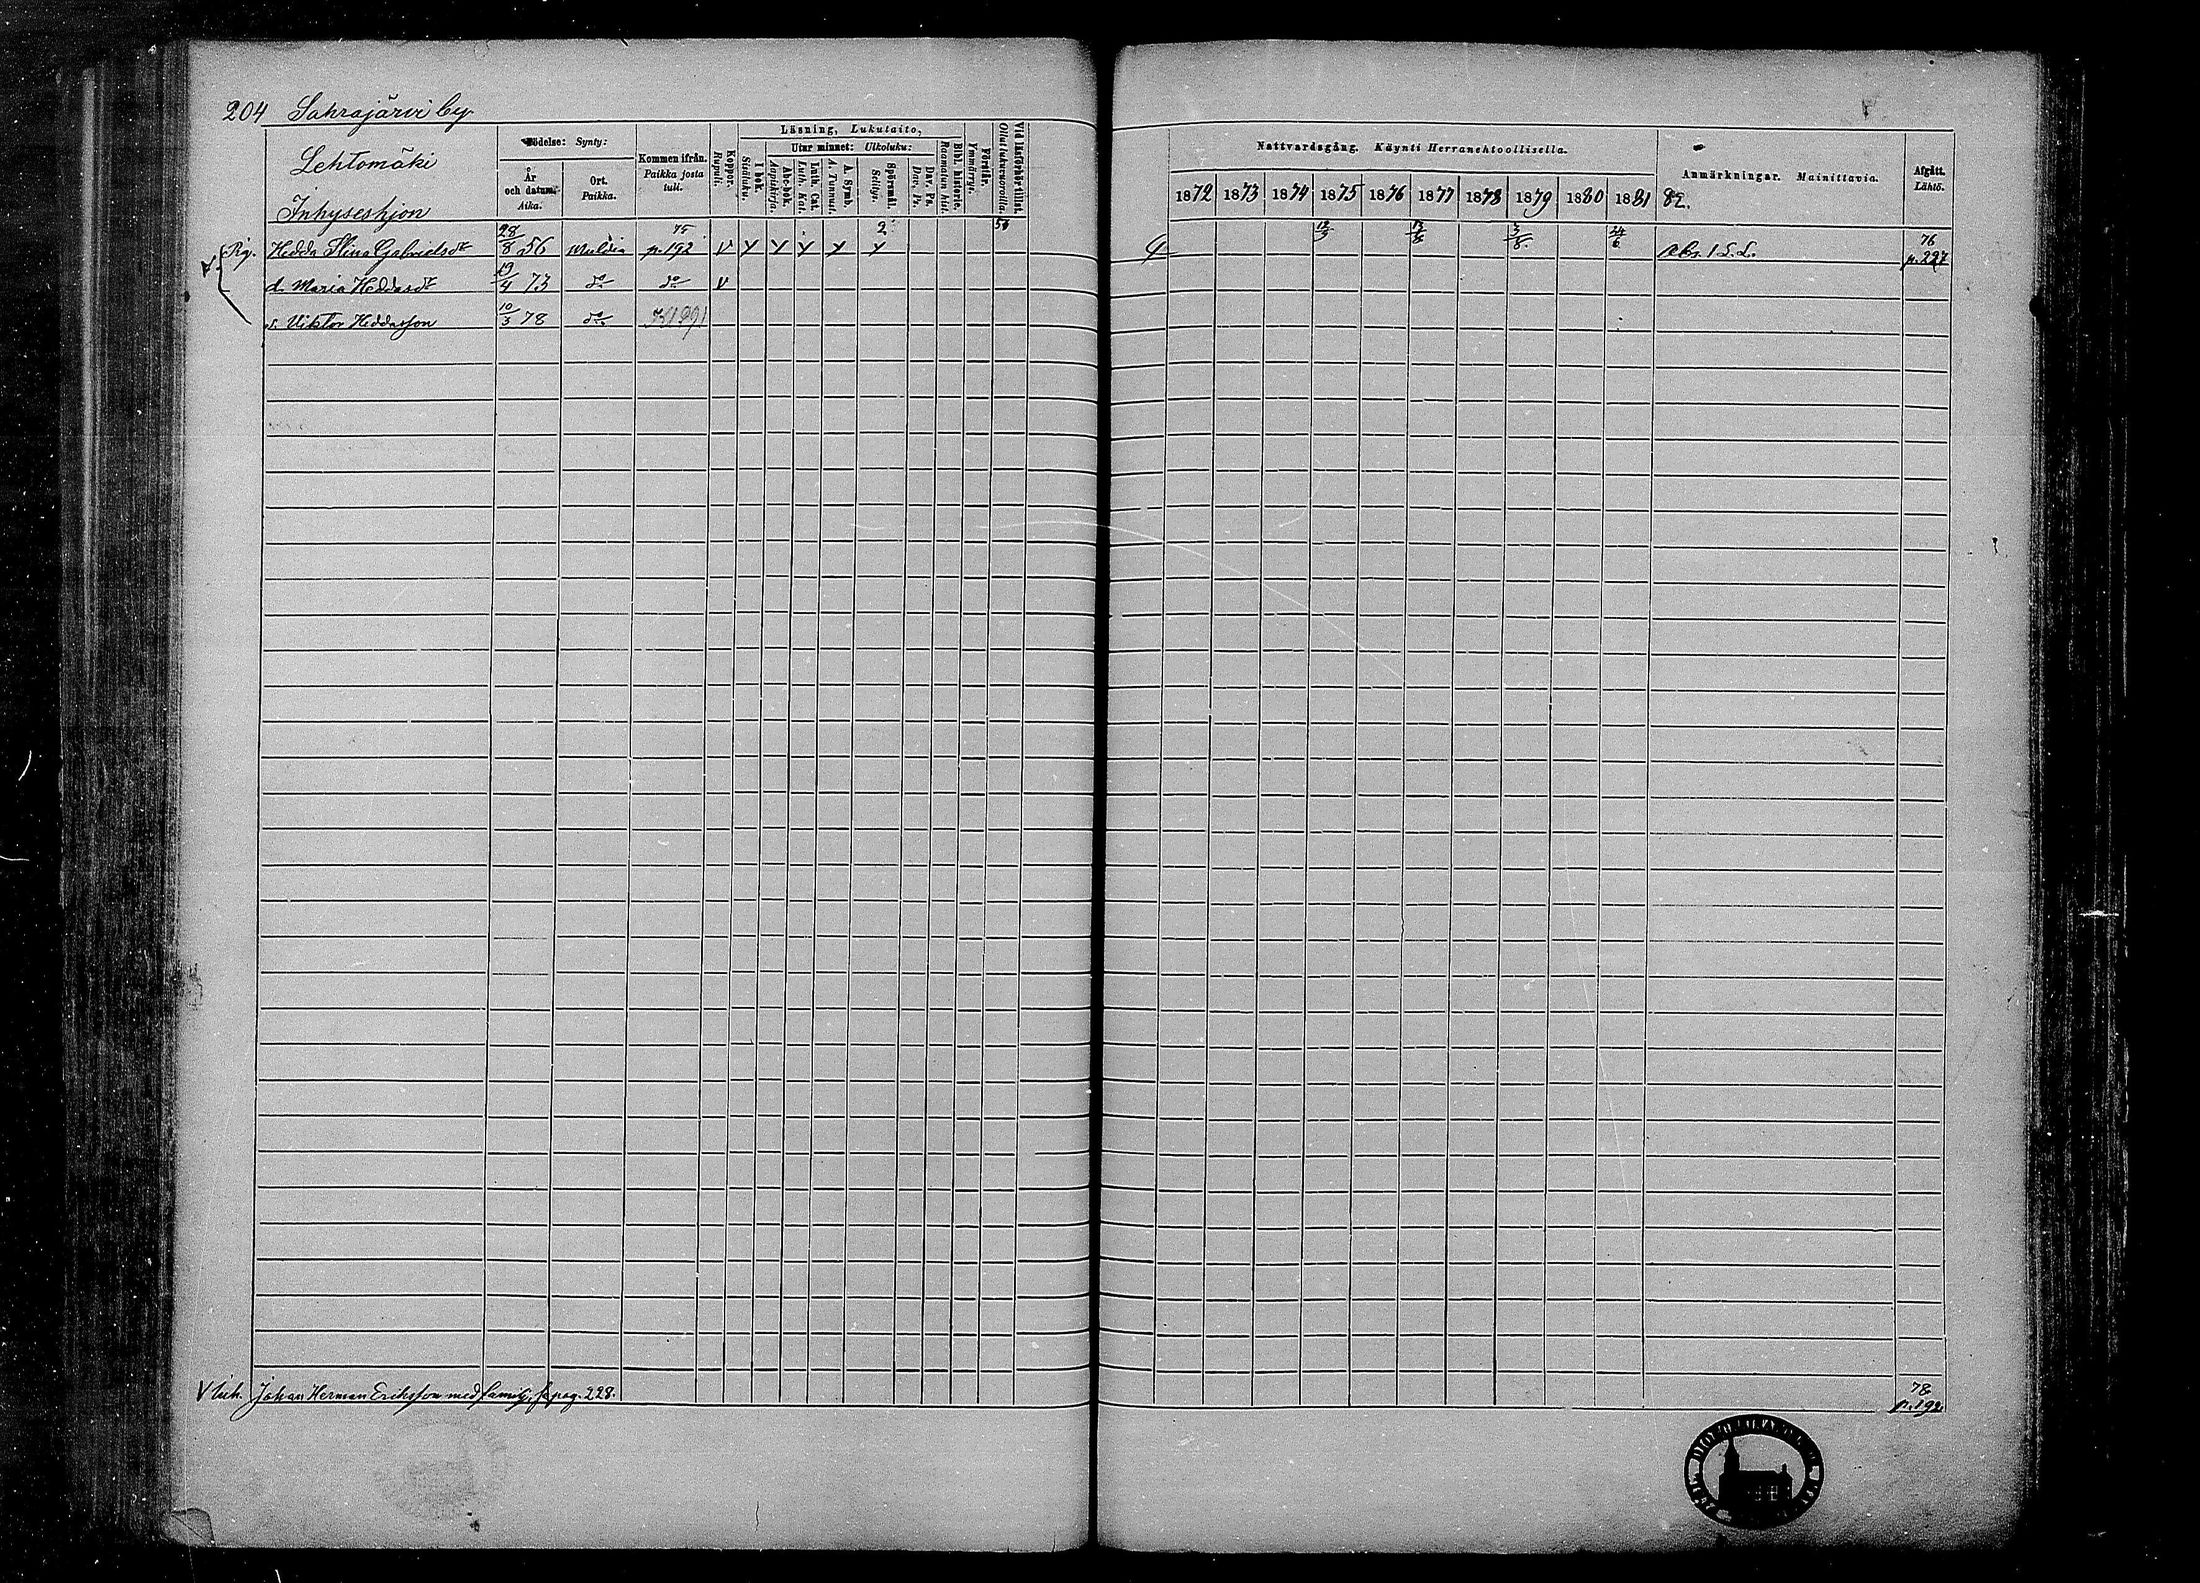 204 Sahrajärvi by
Lehtomäki
Inhyseshjon
Födelse: Synty:
År och datum. Aika.
Ort. Paikka.
Kommen ifrån. Paikka josta tuli.
Koppor. Rupuli.
Läsning, Lukutaito,
I bok. Sisäluku.
Utur minnet: Ulkoluku:
Abc-bok. Aapiskirja.
Luth. Cat. Luth. Kat.
A. Symb. A. Tunnust.
Spörsmål. Selitys.
Dav. Ps. Dav. Ps.
Bibl. historie. Raamatun hist.
Förstår. Ymmärrys.
Vid läsförhör tillst. Ollut lukuvuoroilla.
Nattvardsgång. Käynti Herranehtoollisella.
1872 1873 1874 1875 1876 1877 1878 1879 1880 1881 82.
Anmärkningar. Mainittavia.
Afgått. Lähtö.
Pig. Hedda Stina Gabrielsdr 28/8 56 Muldia 75 p. 192 v y y y y 2 y 12/9 3/8 24/6 Abs. 1 S. L. 76 p. 227
d. Maria Heddasdr 19/4 73 do do v
s. Viktor Heddasson 10/3 78 do
V Inh. Johan Herman Ericsson med familj, se pag. 228. 78 p. 192